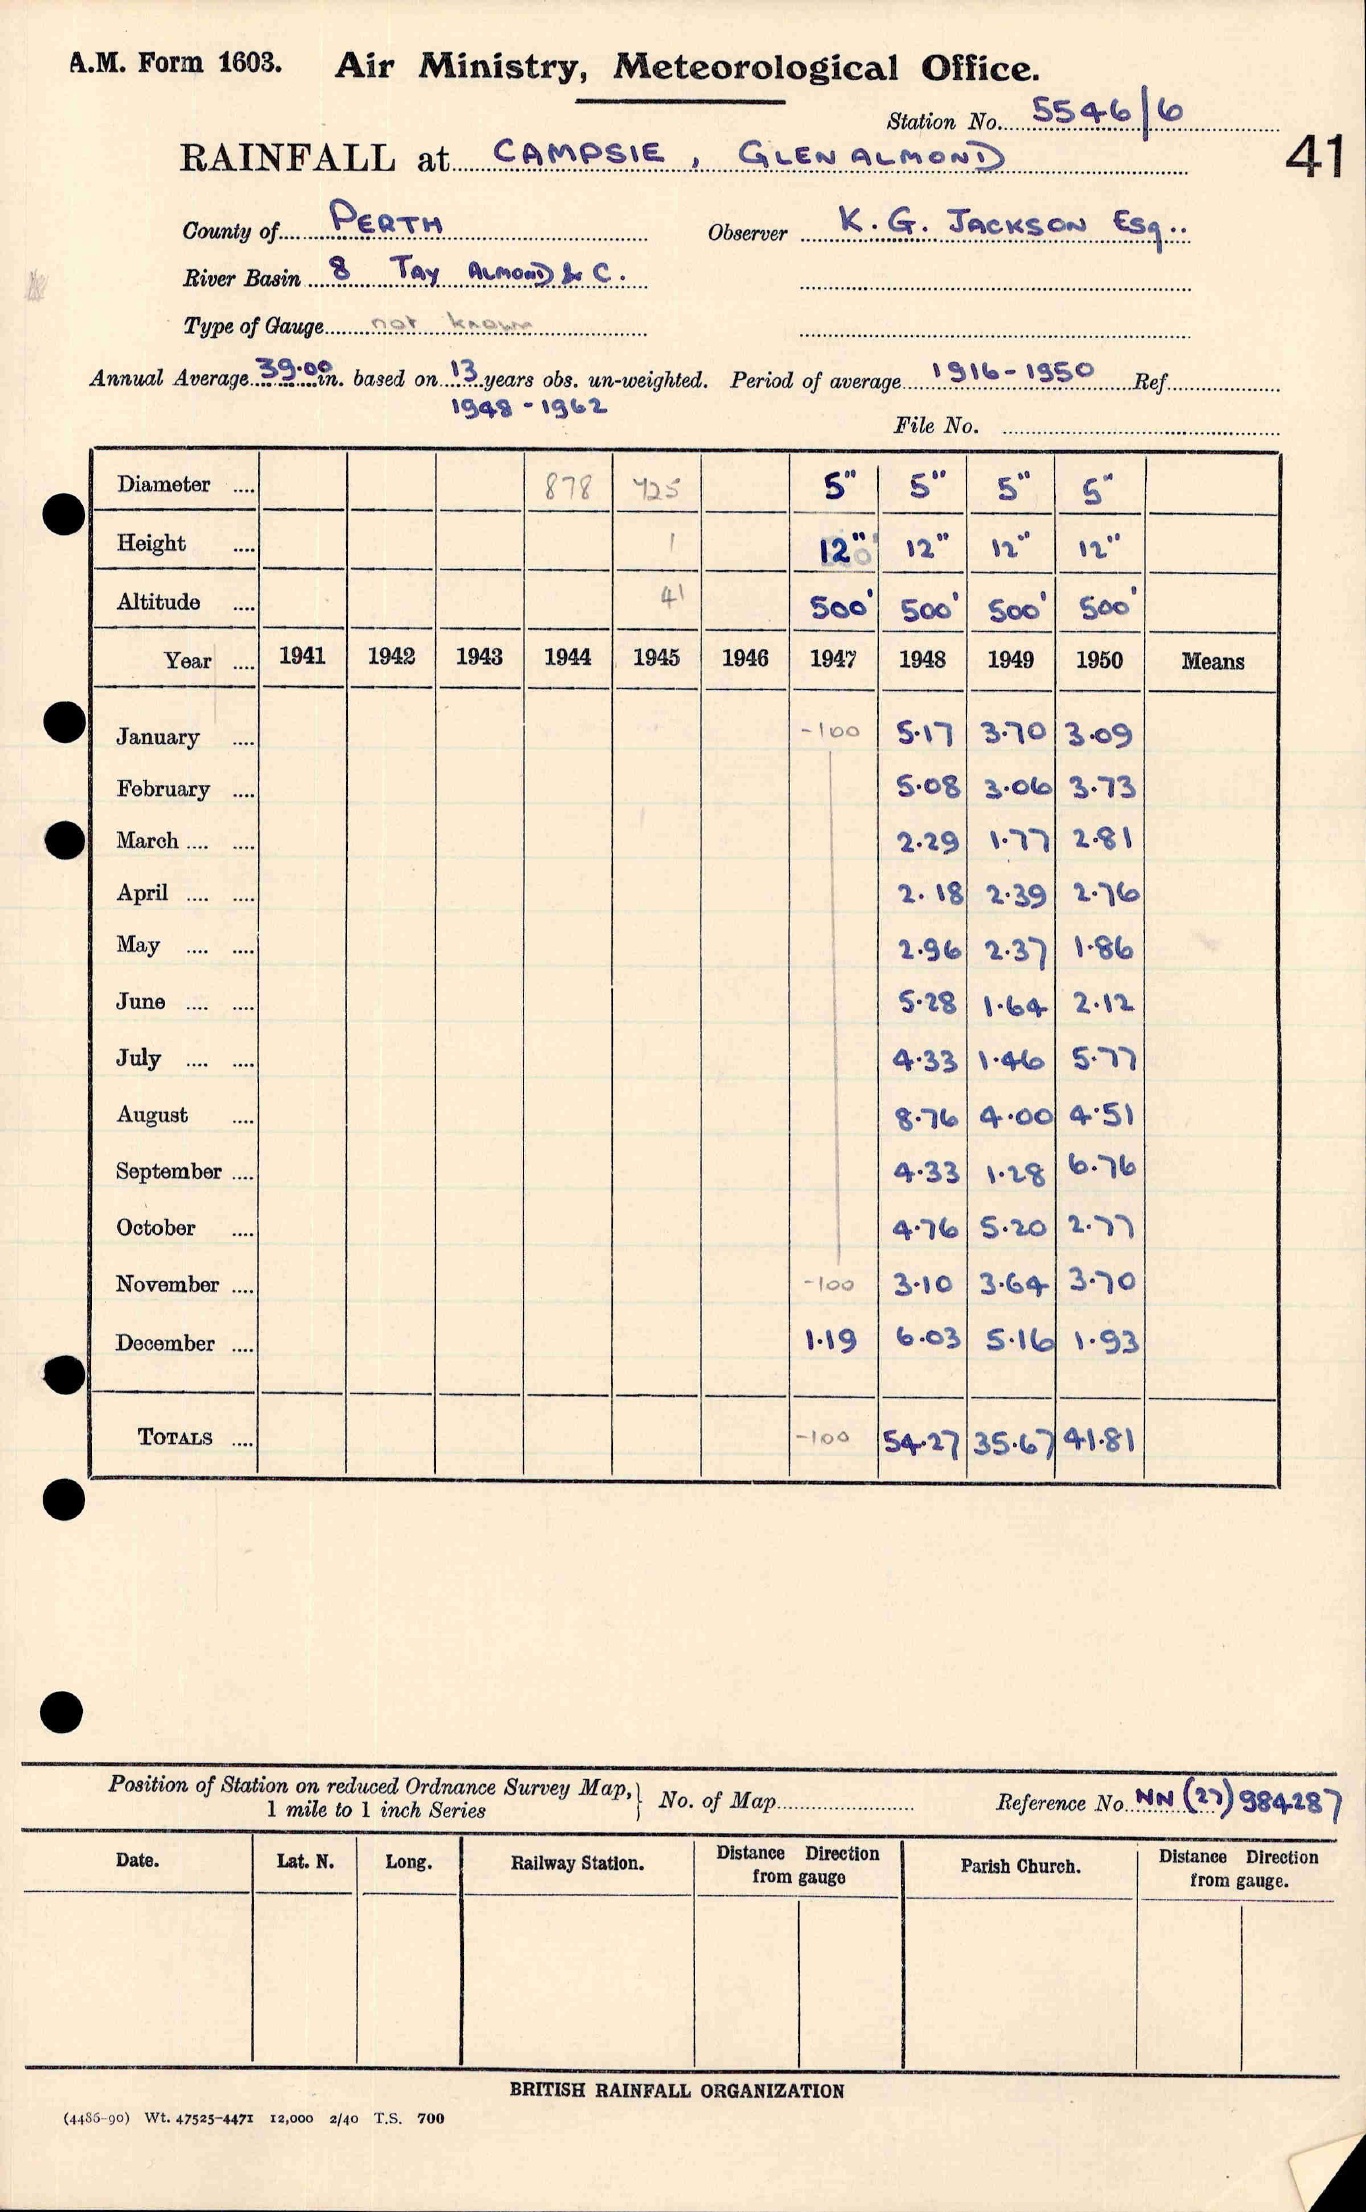 A.M. Form 1603. Air Ministry, Meteorological Office.
Station No. 5546/6
RAINFALL at CAMPSIE, GLENALMOND
41
County of PERTH Observer K. G. JACKSON Esq..
River Basin 8 TAY ALMOND & C.
Type of Gauge not known
Annual Average 39.00 in. based on 13 years obs. un-weighted. Period of average 1916-1950 Ref.
1948-1962
File No.
Diameter .... 878 425 5" 5" 5" 5"
Height .... 1 12" 12" 12" 12"
Altitude .... 41 500' 500' 500' 500'
Year .... 1941 1942 1943 1944 1945 1946 1947 1948 1949 1950 Means
January .... -100 5.17 3.70 3.09
February .... 5.08 3.06 3.73
March .... .... 2.29 1.77 2.81
April .... .... 2.18 2.39 2.76
May .... .... 2.96 2.37 1.86
June .... .... 5.28 1.64 2.12
July .... .... 4.33 1.46 5.77
August .... 8.76 4.00 4.51
September .... 4.33 1.28 6.76
October .... 4.76 5.20 2.77
November .... -100 3.10 3.64 3.70
December .... 1.19 6.03 5.16 1.93
TOTALS .... -100 54.27 35.67 41.81
Position of Station on reduced Ordnance Survey Map, } No. of Map Reference No. NN (27) 984287
1 mile to 1 inch Series
Date. Lat. N. Long. Railway Station. Distance Direction from gauge Parish Church. Distance Direction from gauge.
BRITISH RAINFALL ORGANIZATION
(4486-90) Wt. 47525-4471 12,000 2/40 T.S. 700